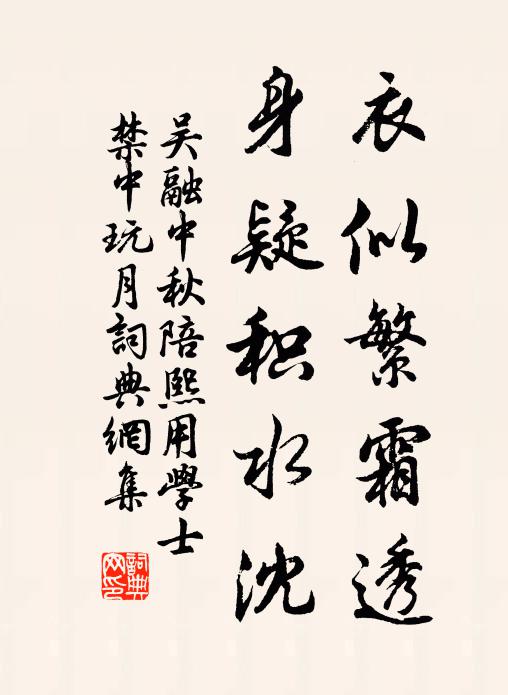 衣似繁霜透
身疑积水沈
吴融中秋陪熙用學士
禁中玩月詞典網集
詞典
网印